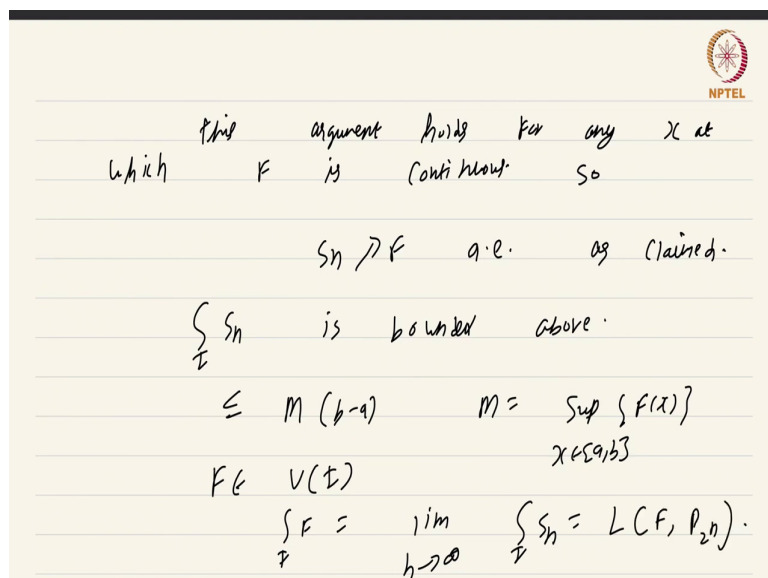 NPTEL
this argument holds for any x at
which F is continuous. So
Sn ↗ F a.e. as claimed.
∫_I Sn is bounded above.
≤ M (b-a) M = sup {F(x)}
x∈[a,b]
F ∈ U(I)
∫_I F = lim_{n→∞} ∫_I Sn = L(F, P_{2^n}).